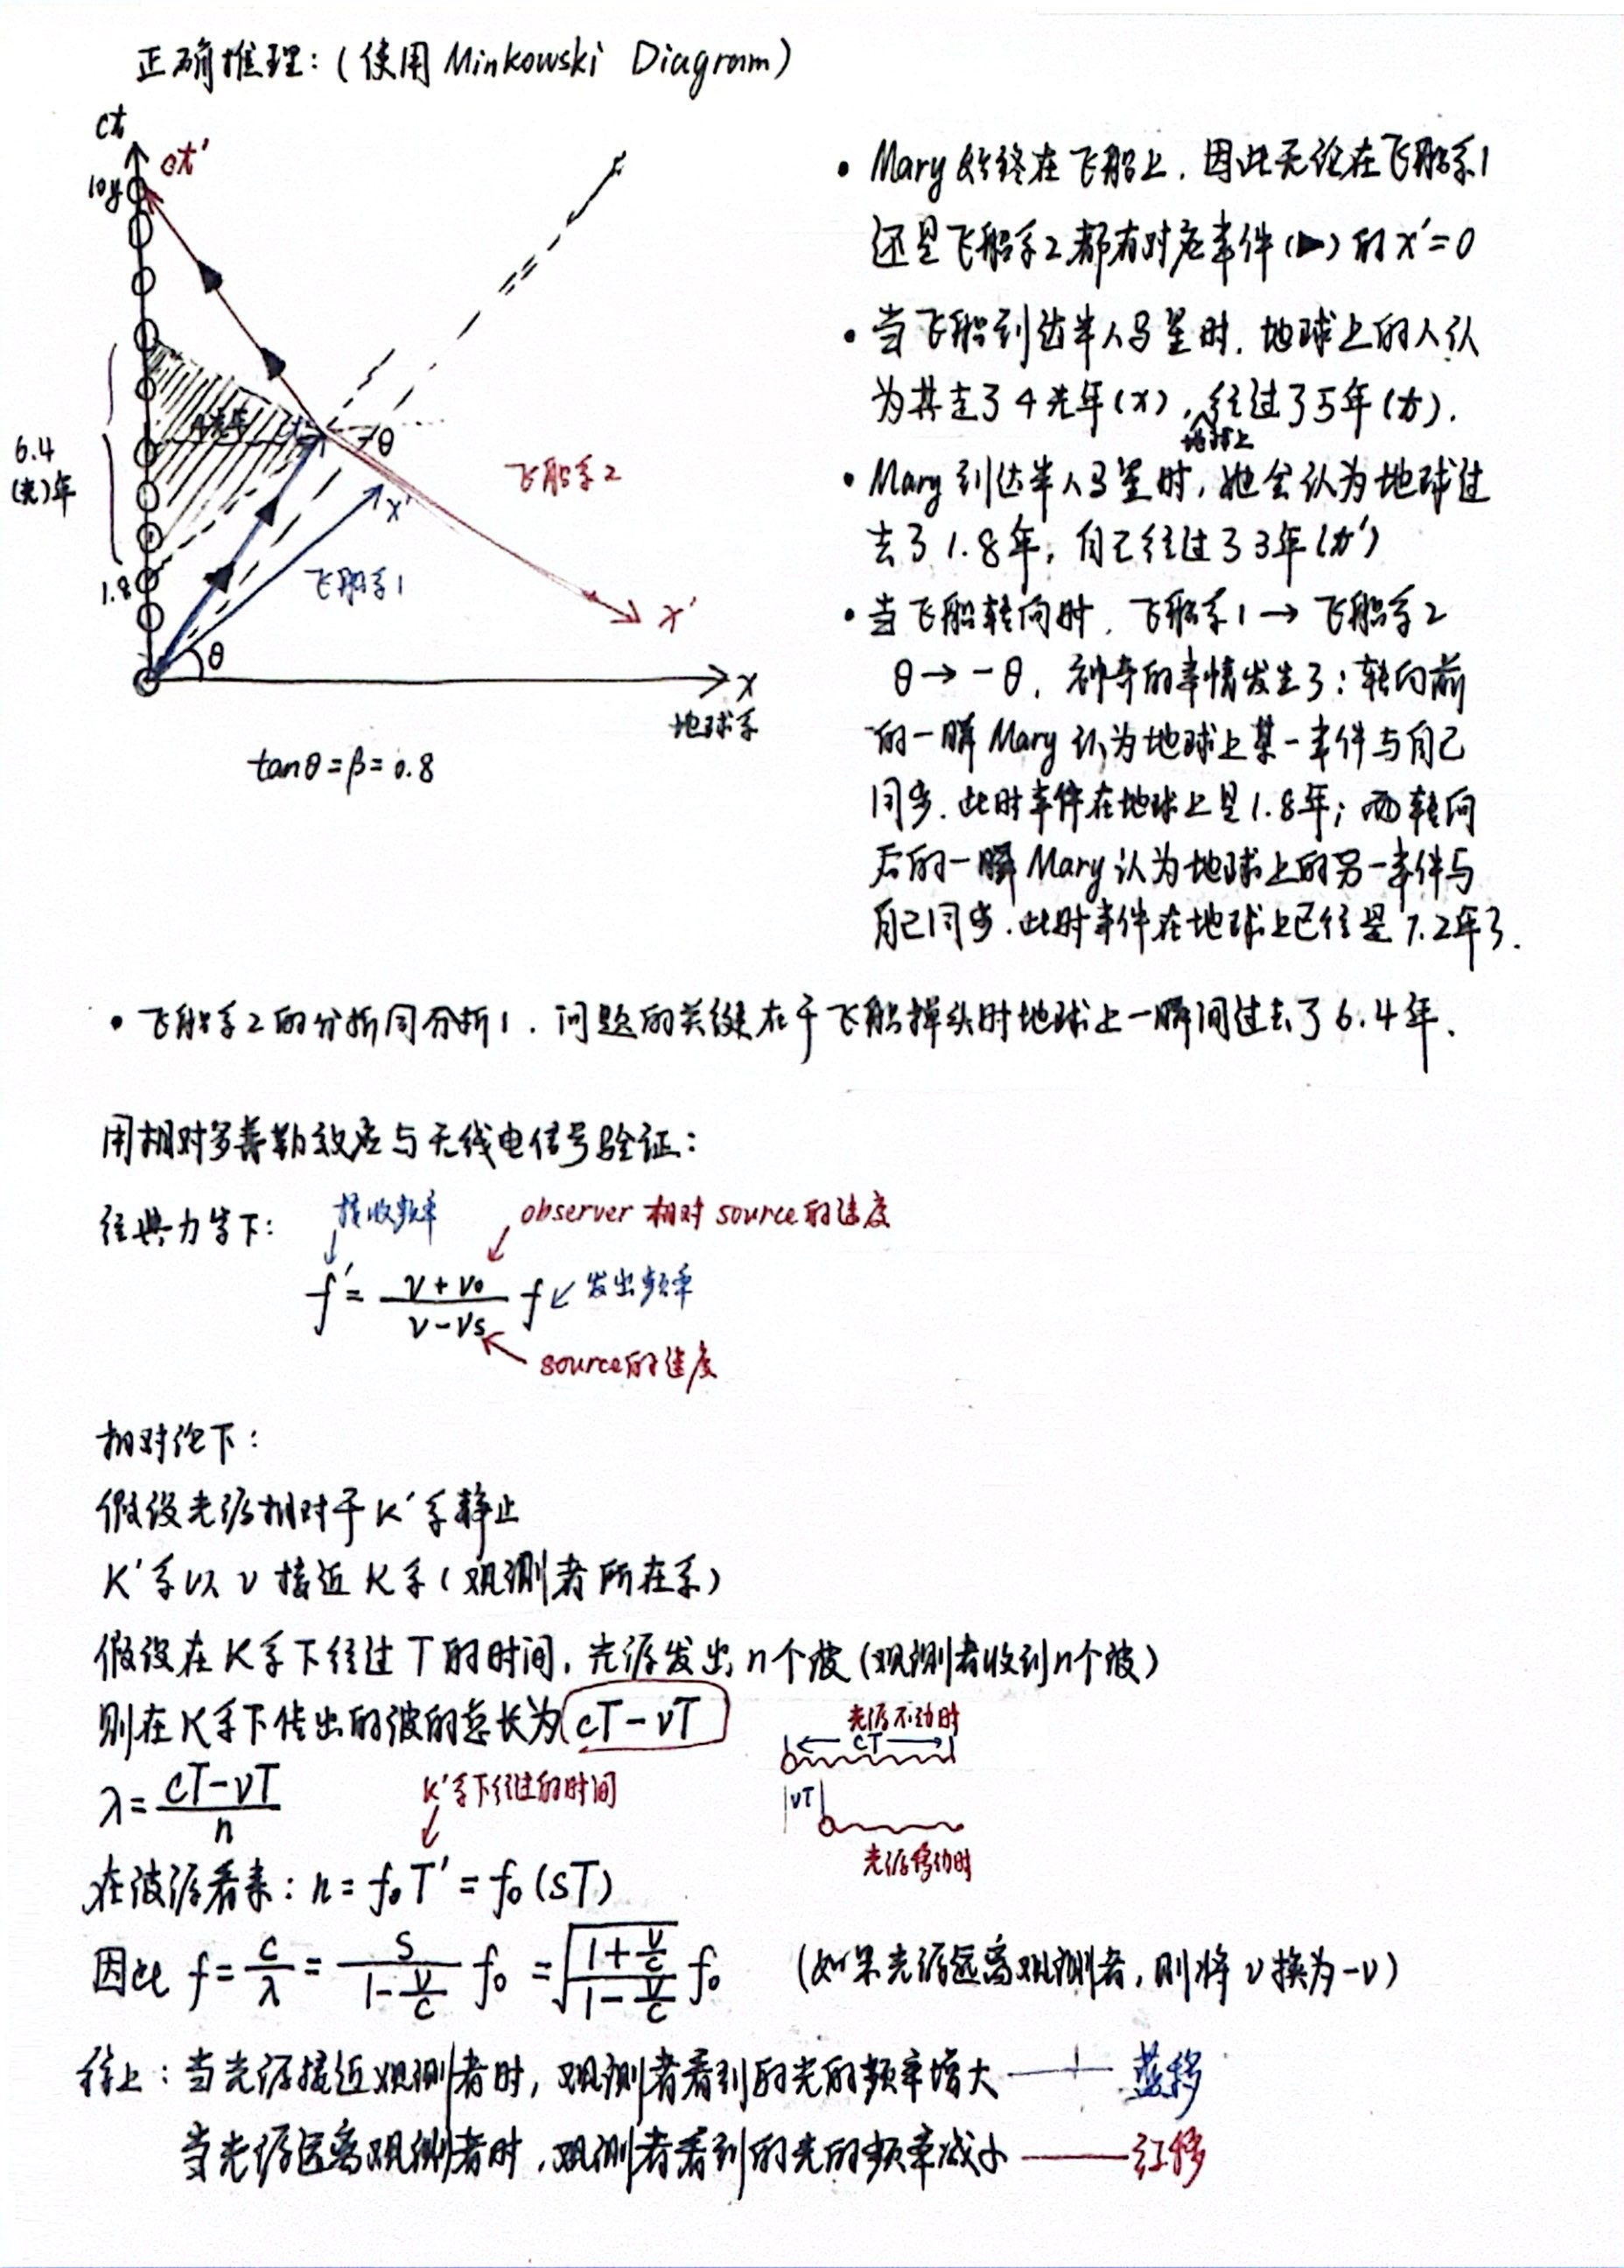 正确推理：(使用 Minkowski Diagram)
ct
ct'
10y
6.4
(光)年
1.8
4光年
θ
x'
飞船系1
飞船系2
x'
θ
x
地球系
tanθ = β = 0.8
• Mary 始终在飞船上，因此无论在飞船系1
还是飞船系2都有对应事件(▶)的 x'=0
• 当飞船到达半人马星时，地球上的人认
为其走了4光年(x)，经过了5年(t).
地球上
• Mary 到达半人马星时，她会认为地球过
去了1.8年，自己经过了3年(t')
• 当飞船转向时，飞船系1 → 飞船系2
θ → -θ，神奇的事情发生了：转向前
的一瞬 Mary 认为地球上某一事件与自己
同步，此时事件在地球上是1.8年；而转向
后的一瞬 Mary 认为地球上的另一事件与
自己同步，此时事件在地球上已经是7.2年了.
• 飞船系2的分析同分析1，问题的关键在于飞船掉头时地球上一瞬间过去了6.4年.
用相对多普勒效应与无线电信号验证：
经典力学下：
接收频率
observer 相对 source 的速度
f' = (v + v₀)/(v - vs) f
发出频率
source的速度
相对论下：
假设光源相对于 K' 系静止
K' 系以 v 接近 K 系 (观测者所在系)
假设在 K 系下经过 T 的时间，光源发出 n 个波 (观测者收到n个波)
则在 K 系下传出的波的总长为 cT - vT
光源不动时
cT
vT
光源移动时
λ = (cT - vT)/n
K'系下经过的时间
在波源看来：n = f₀T' = f₀(sT)
因此 f = c/λ = s/(1 - v/c) f₀ = √((1 + v/c)/(1 - v/c)) f₀ (如果光源远离观测者，则将 v 换为 -v)
综上：当光源接近观测者时，观测者看到的光的频率增大 —— 蓝移
当光源远离观测者时，观测者看到的光的频率减小 —— 红移